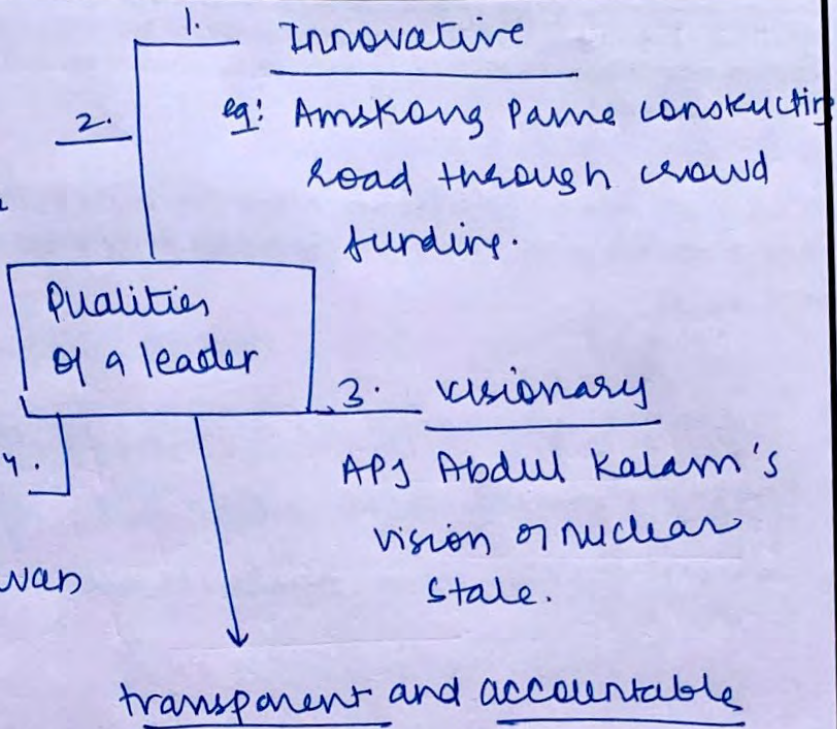 1. Innovative
eg: Amstrong Pame constructing
2.
road through crowd
funding.
Qualities
of a leader
3. visionary
4.
APJ Abdul Kalam's
vision of nuclear
wan
state.
transparent and accountable